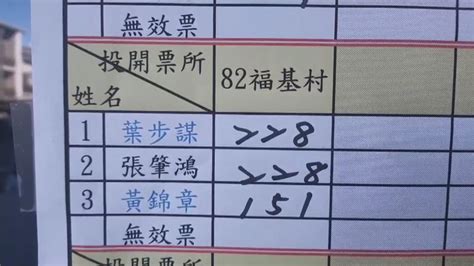 無效票
投開票所
姓名
82福基村
1 葉步謀 228
2 張肇鴻 228
3 黃錦章 151
無效票
投開票所